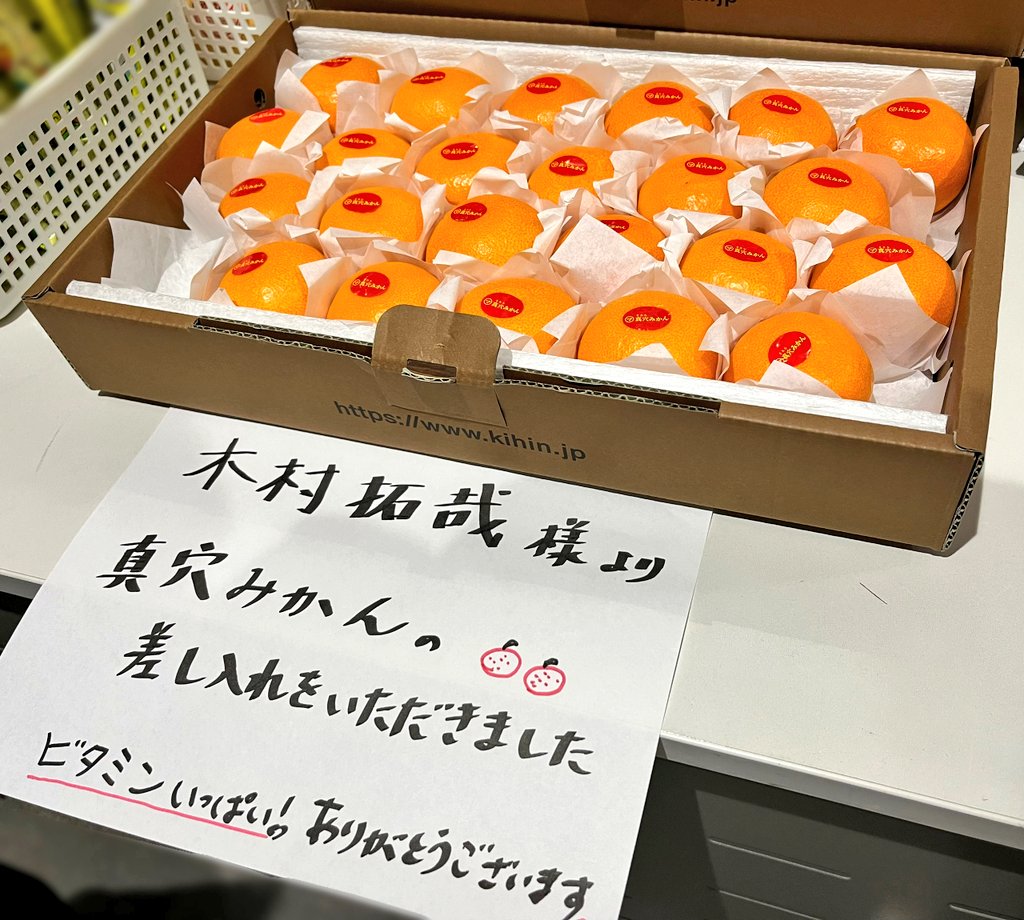 .jp
真穴みかん
https://www.kihin.jp
木村拓哉様より
真穴みかんの
差し入れをいただきました
ビタミンいっぱい!! ありがとうございます